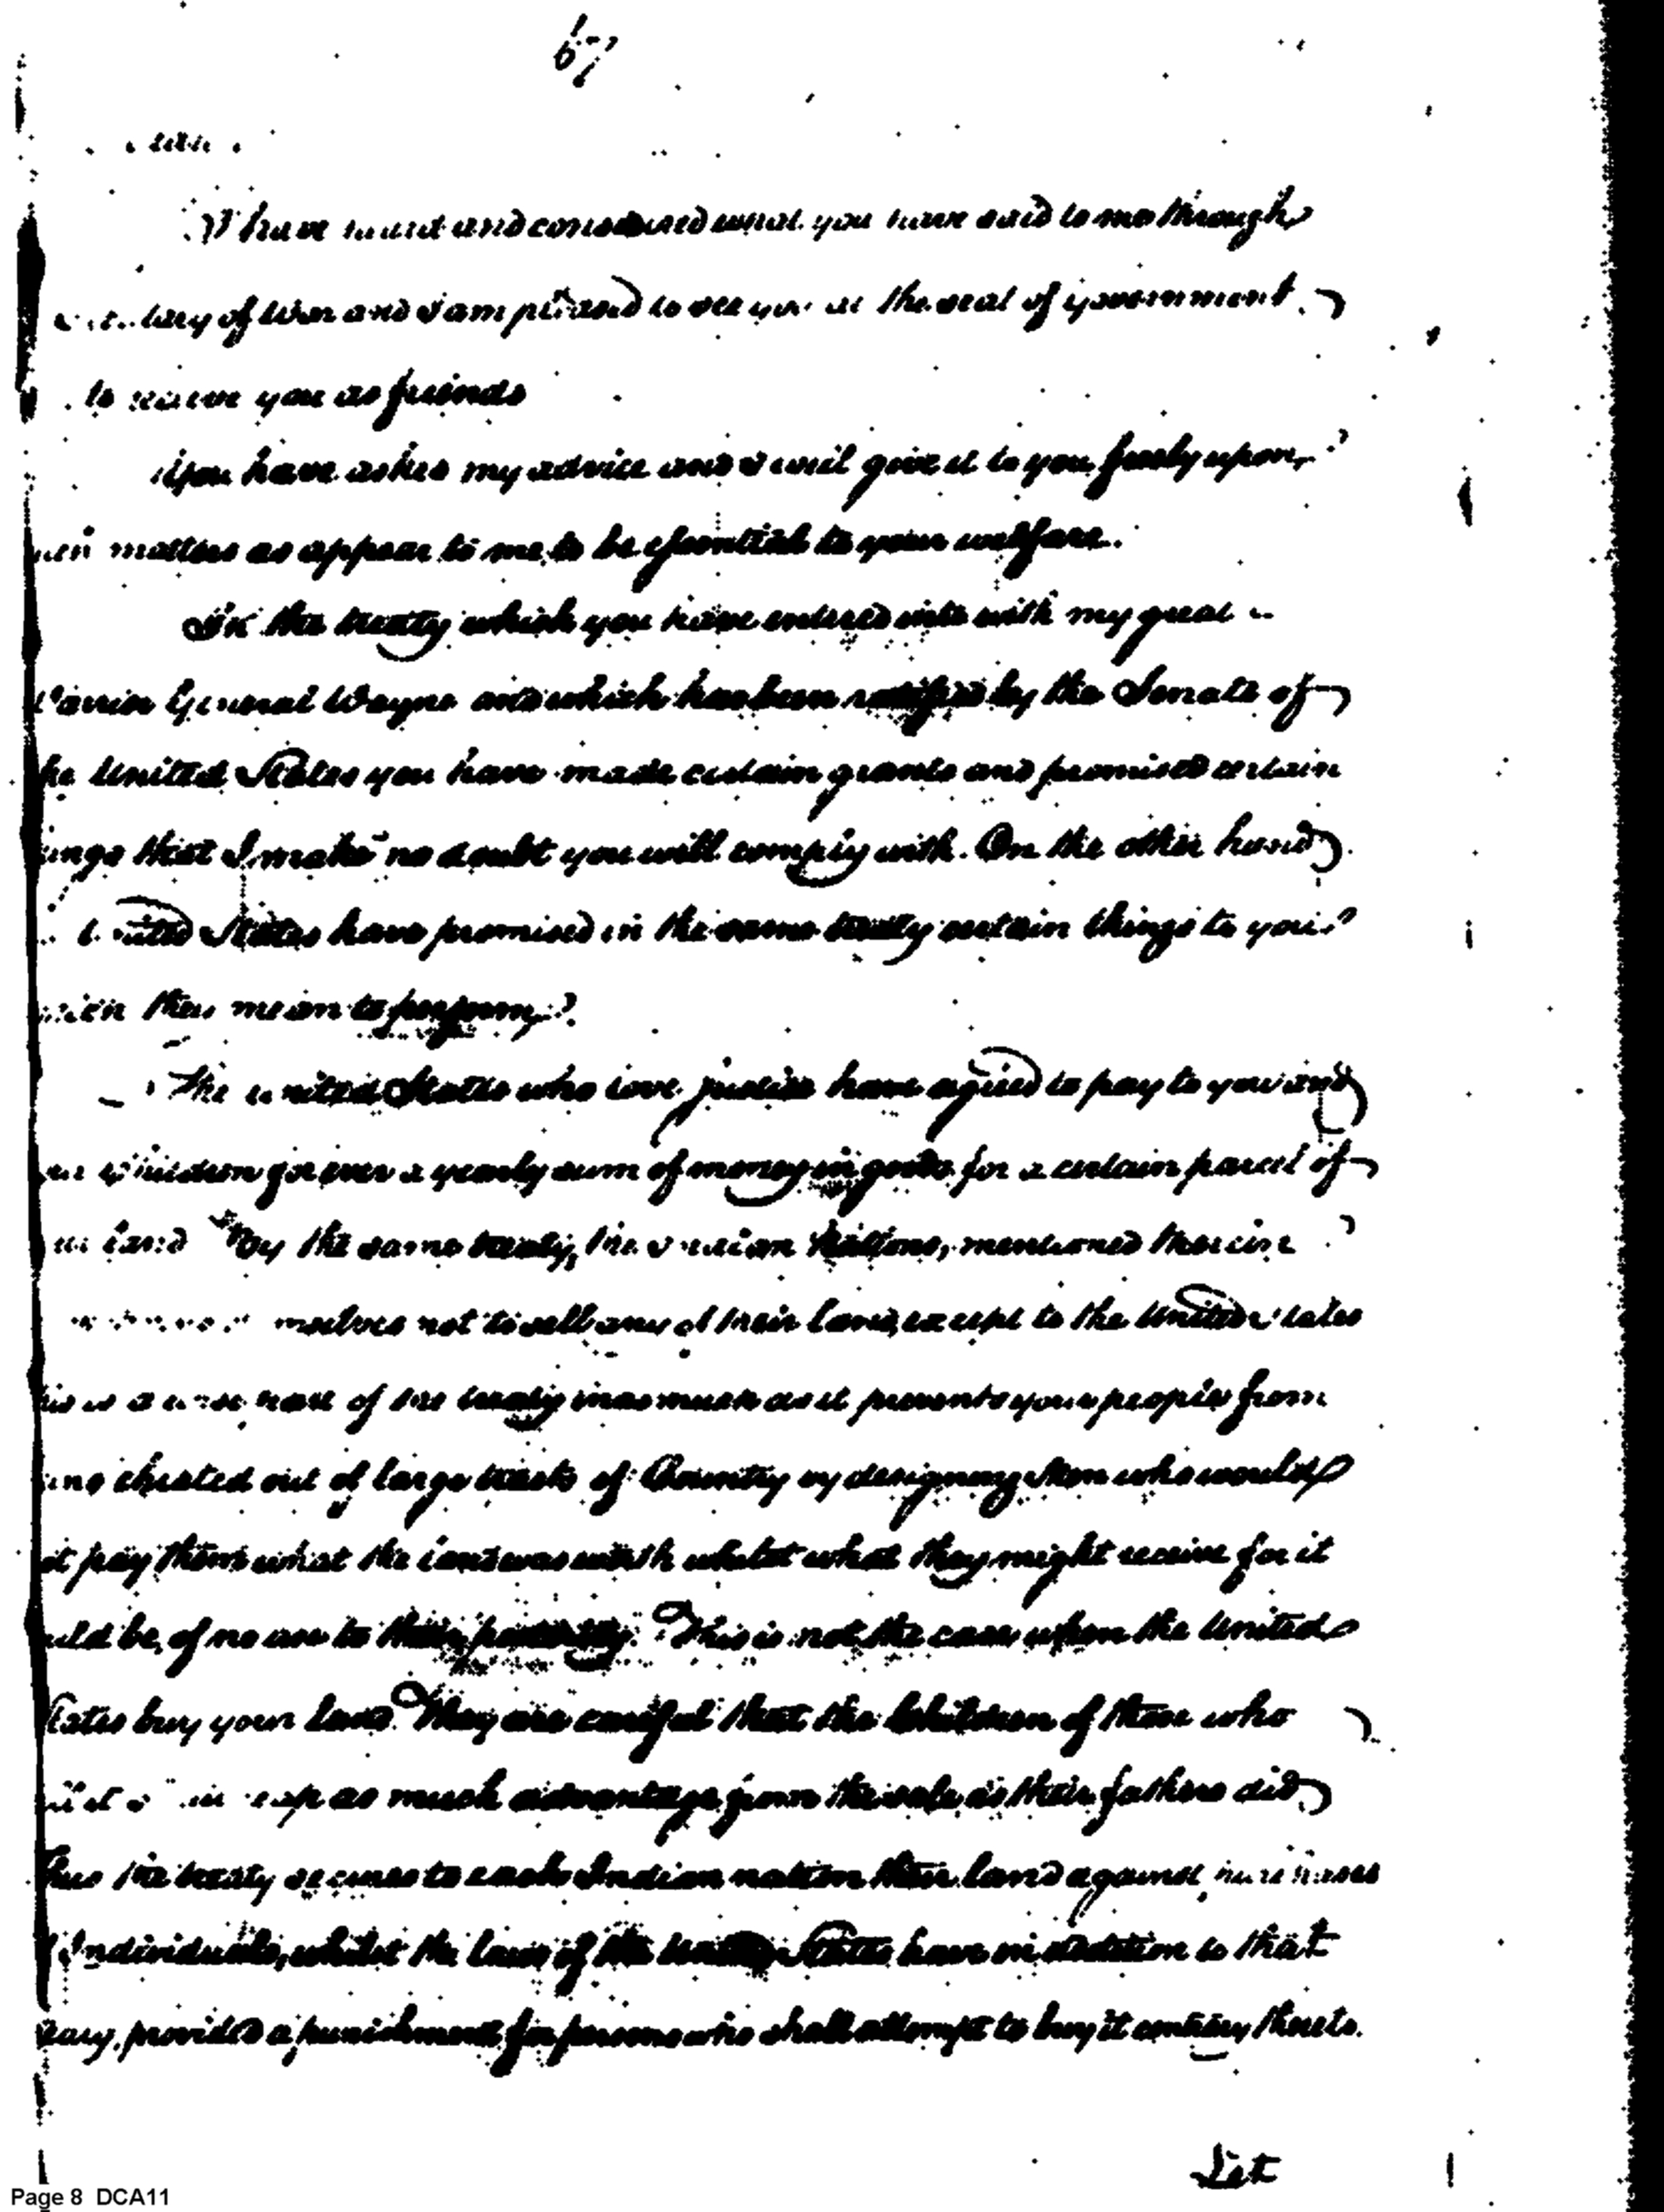 67
I have heard and considered what you have said to me through
of War and I am pleased to see you at the seat of government
to receive you as friends
You have asked my advice and I will give it to you freely upon
matters as appear to me to be essential to your welfare.
In the treaty which you have entered into with my great
General Wayne and which has been ratified by the Senate of
he United States you have made certain grants and promised certain
ings that I make no doubt you will comply with. On the other hand
States have promised in the same treaty certain things to you
they mean to perform
The United States who love justice have agreed to pay to you and
children for ever a yearly sum of money in goods for a certain parcel of
land By the same treaty, the Indian Nations, mentioned therein
mselves not to sell any of their land, except to the United States
is a wise part of the treaty inasmuch as it prevents your people from
ing cheated out of large tracts of Country by designing Men who would
ot pay them what the land was worth whilst what they might receive for it
uld be, of no use to their posterity. This is not the case when the United
States buy your land. They are careful that the Children of those who
reap as much advantage from the sale as their fathers did
hus the treaty secures to each Indian nation their land against purchases
Individuals, whilst the laws of the United States have in addition to that
eaty, provided a punishment for persons who shall attempt to buy it contrary thereto.
Let
Page 8 DCA11